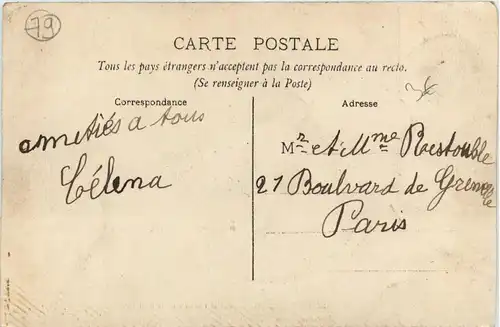 79
CARTE POSTALE
Tous les pays étrangers n'acceptent pas la correspondance au recto.
(Se renseigner à la Poste)
Correspondance
amitiés a tous
Célena
Adresse
Mr et Mme Restouble
27 Boulvard de Grenelle
Paris